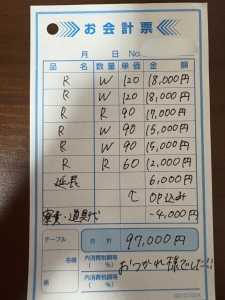 お会計票
月 日 No.
品 名 数量 単価 金 額
R W 120 18,000円
W 120 18,000円
R R 90 17,000円
R W 90 15,000円
R W 90 15,000円
R R 60 12,000円
延長 6,000円
て OP込み
寮費・道具代 -4,000円
テーブル 合計 97,000円
名様 内消費税額等
( %)
係 内消費税額等
( %)
おつかれ様でした!!